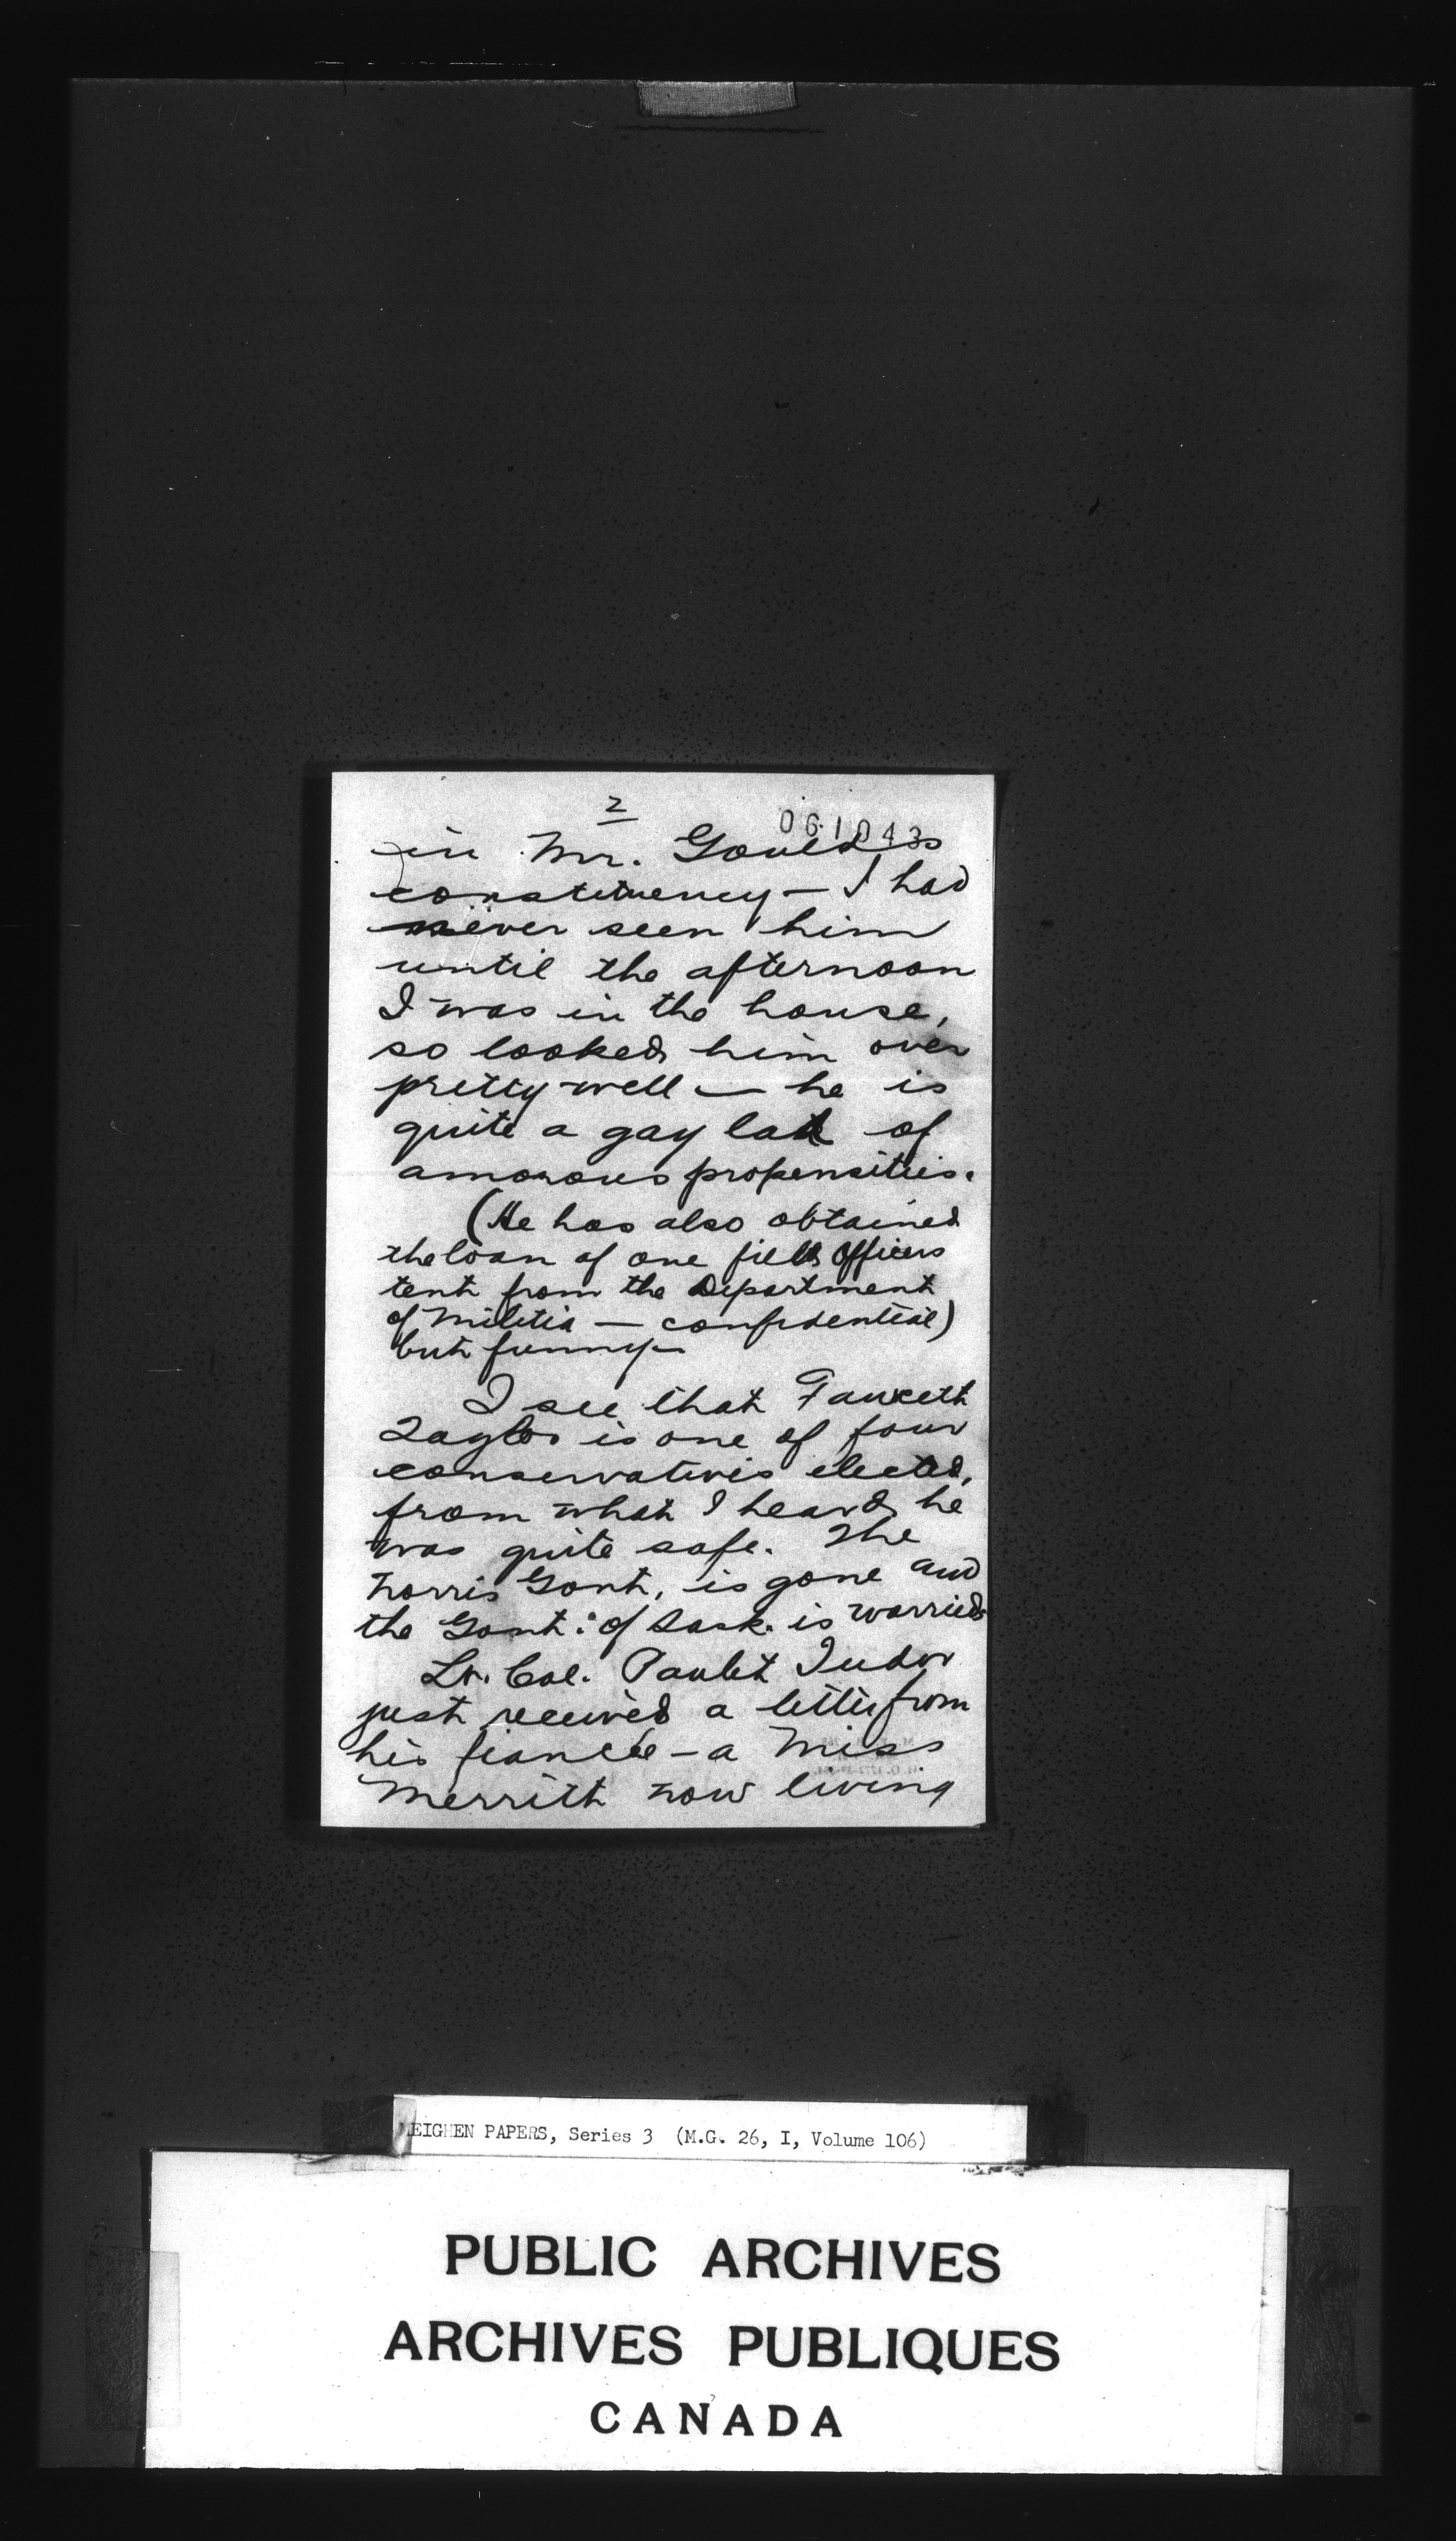 2
061043
in Mr. Gould's
constituency — I had
never seen him
until the afternoon
I was in the house,
so looked him over
pretty well — he is
quite a gay lad of
amorous propensities.
(He has also obtained
the loan of one field Officers
tent from the Department
of Militia — confidential)
but funny —
I see that Fawcett
Taylor is one of four
conservatives elected,
from what I heard he
was quite safe. The
Norris Govt. is gone and
the Govt. of Sask. is worried
Lt. Col. Paulet Tudor
just received a letter from
his fiancée — a Miss
Merritt now living
MEIGHEN PAPERS, Series 3 (M.G. 26, I, Volume 106)
PUBLIC ARCHIVES
ARCHIVES PUBLIQUES
CANADA